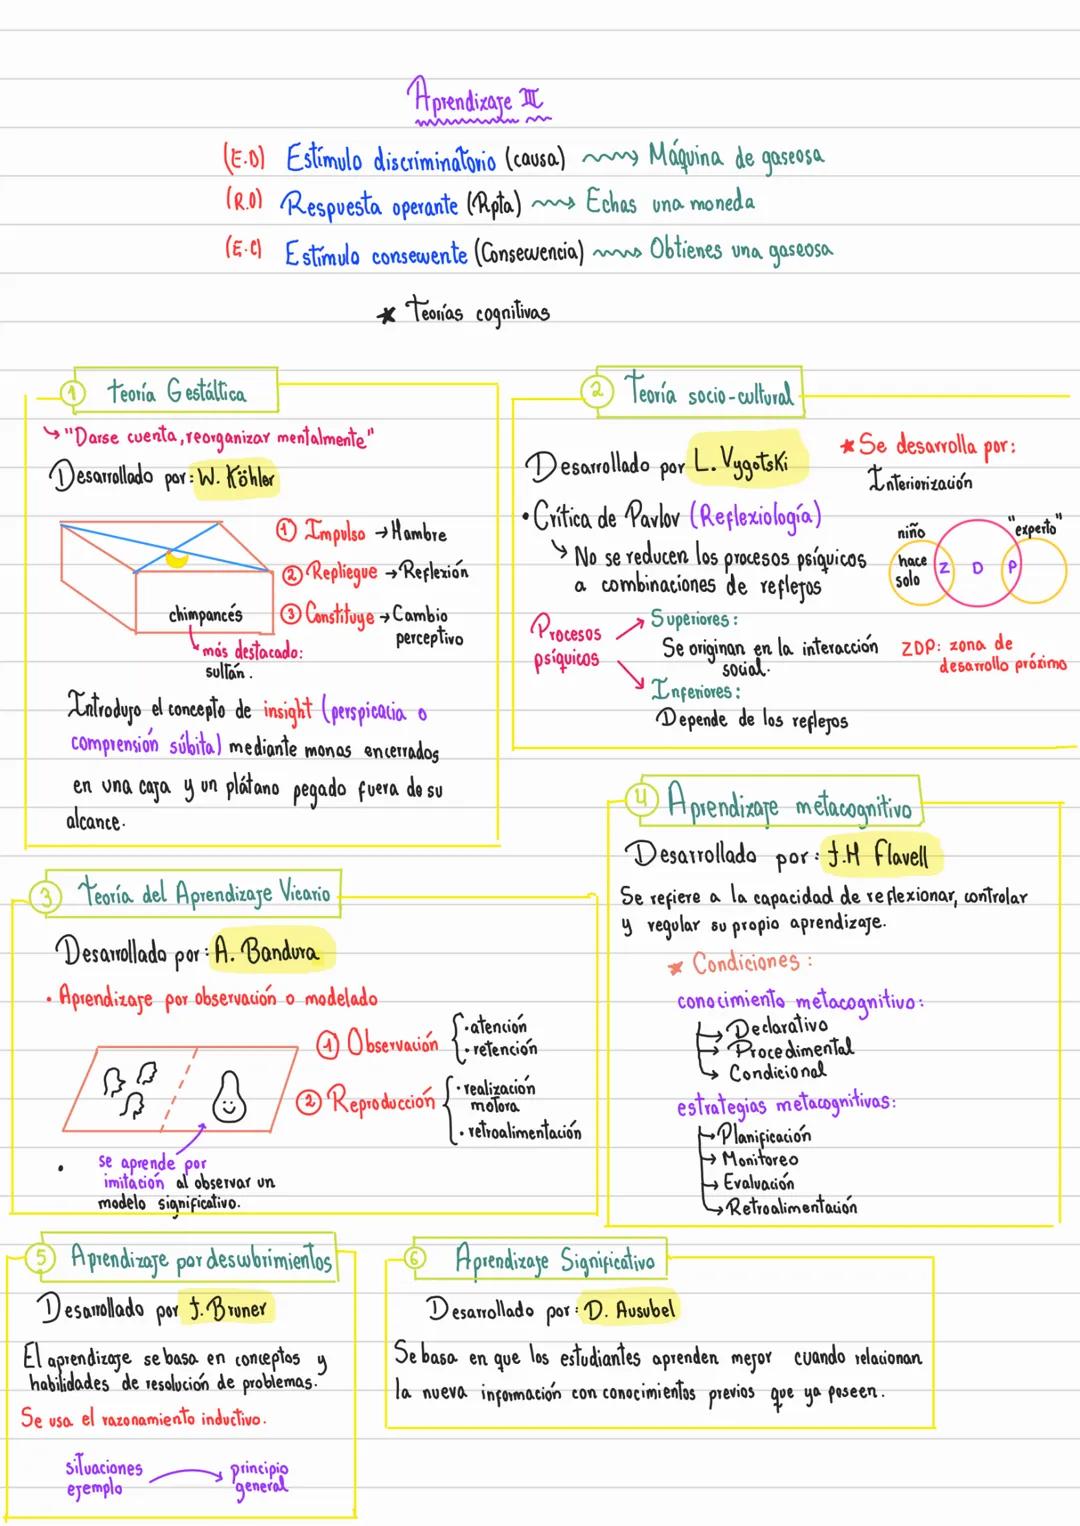 Aprendizaje III
(E.D) Estímulo discriminatorio (causa) Máquina de gaseosa
(R.O) Respuesta operante (Rpta) Echas una moneda
(E.C) Estímulo consecuente (Consecuencia) Obtienes una gaseosa
* Teorías cognitivas
1 Teoría Gestáltica
"Darse cuenta, reorganizar mentalmente"
Desarrollado por: W. Köhler
1 Impulso → Hambre
2 Repliegue → Reflexión
3 Constituye → Cambio
perceptivo
chimpancés
más destacado:
sultán.
Introdujo el concepto de insight (perspicacia o
comprensión súbita) mediante monos encerrados
en una caja y un plátano pegado fuera de su
alcance.
2 Teoría socio-cultural
Desarrollado por L. Vygotski
* Se desarrolla por:
Interiorización
• Crítica de Pavlov (Reflexiología)
No se reducen los procesos psíquicos
a combinaciones de reflejos
niño
"experto"
hace
solo
Z D P
ZDP: zona de
desarrollo próximo
Procesos
psíquicos
Superiores:
Se originan en la interacción
social.
Inferiores:
Depende de los reflejos
3 Teoría del Aprendizaje Vicario
Desarrollado por: A. Bandura
• Aprendizaje por observación o modelado
1 Observación
• atención
• retención
2 Reproducción
• realización
motora
• retroalimentación
• se aprende por
imitación al observar un
modelo significativo.
4 Aprendizaje metacognitivo
Desarrollado por: J.H Flavell
Se refiere a la capacidad de reflexionar, controlar
y regular su propio aprendizaje.
* Condiciones:
conocimiento metacognitivo:
Declarativo
Procedimental
Condicional
estrategias metacognitivas:
Planificación
Monitoreo
Evaluación
Retroalimentación
5 Aprendizaje por descubrimientos
Desarrollado por J. Bruner
El aprendizaje se basa en conceptos y
habilidades de resolución de problemas.
Se usa el razonamiento inductivo.
situaciones
ejemplo
principio
general
6 Aprendizaje Significativo
Desarrollado por: D. Ausubel
Se basa en que los estudiantes aprenden mejor cuando relacionan
la nueva información con conocimientos previos que ya poseen.